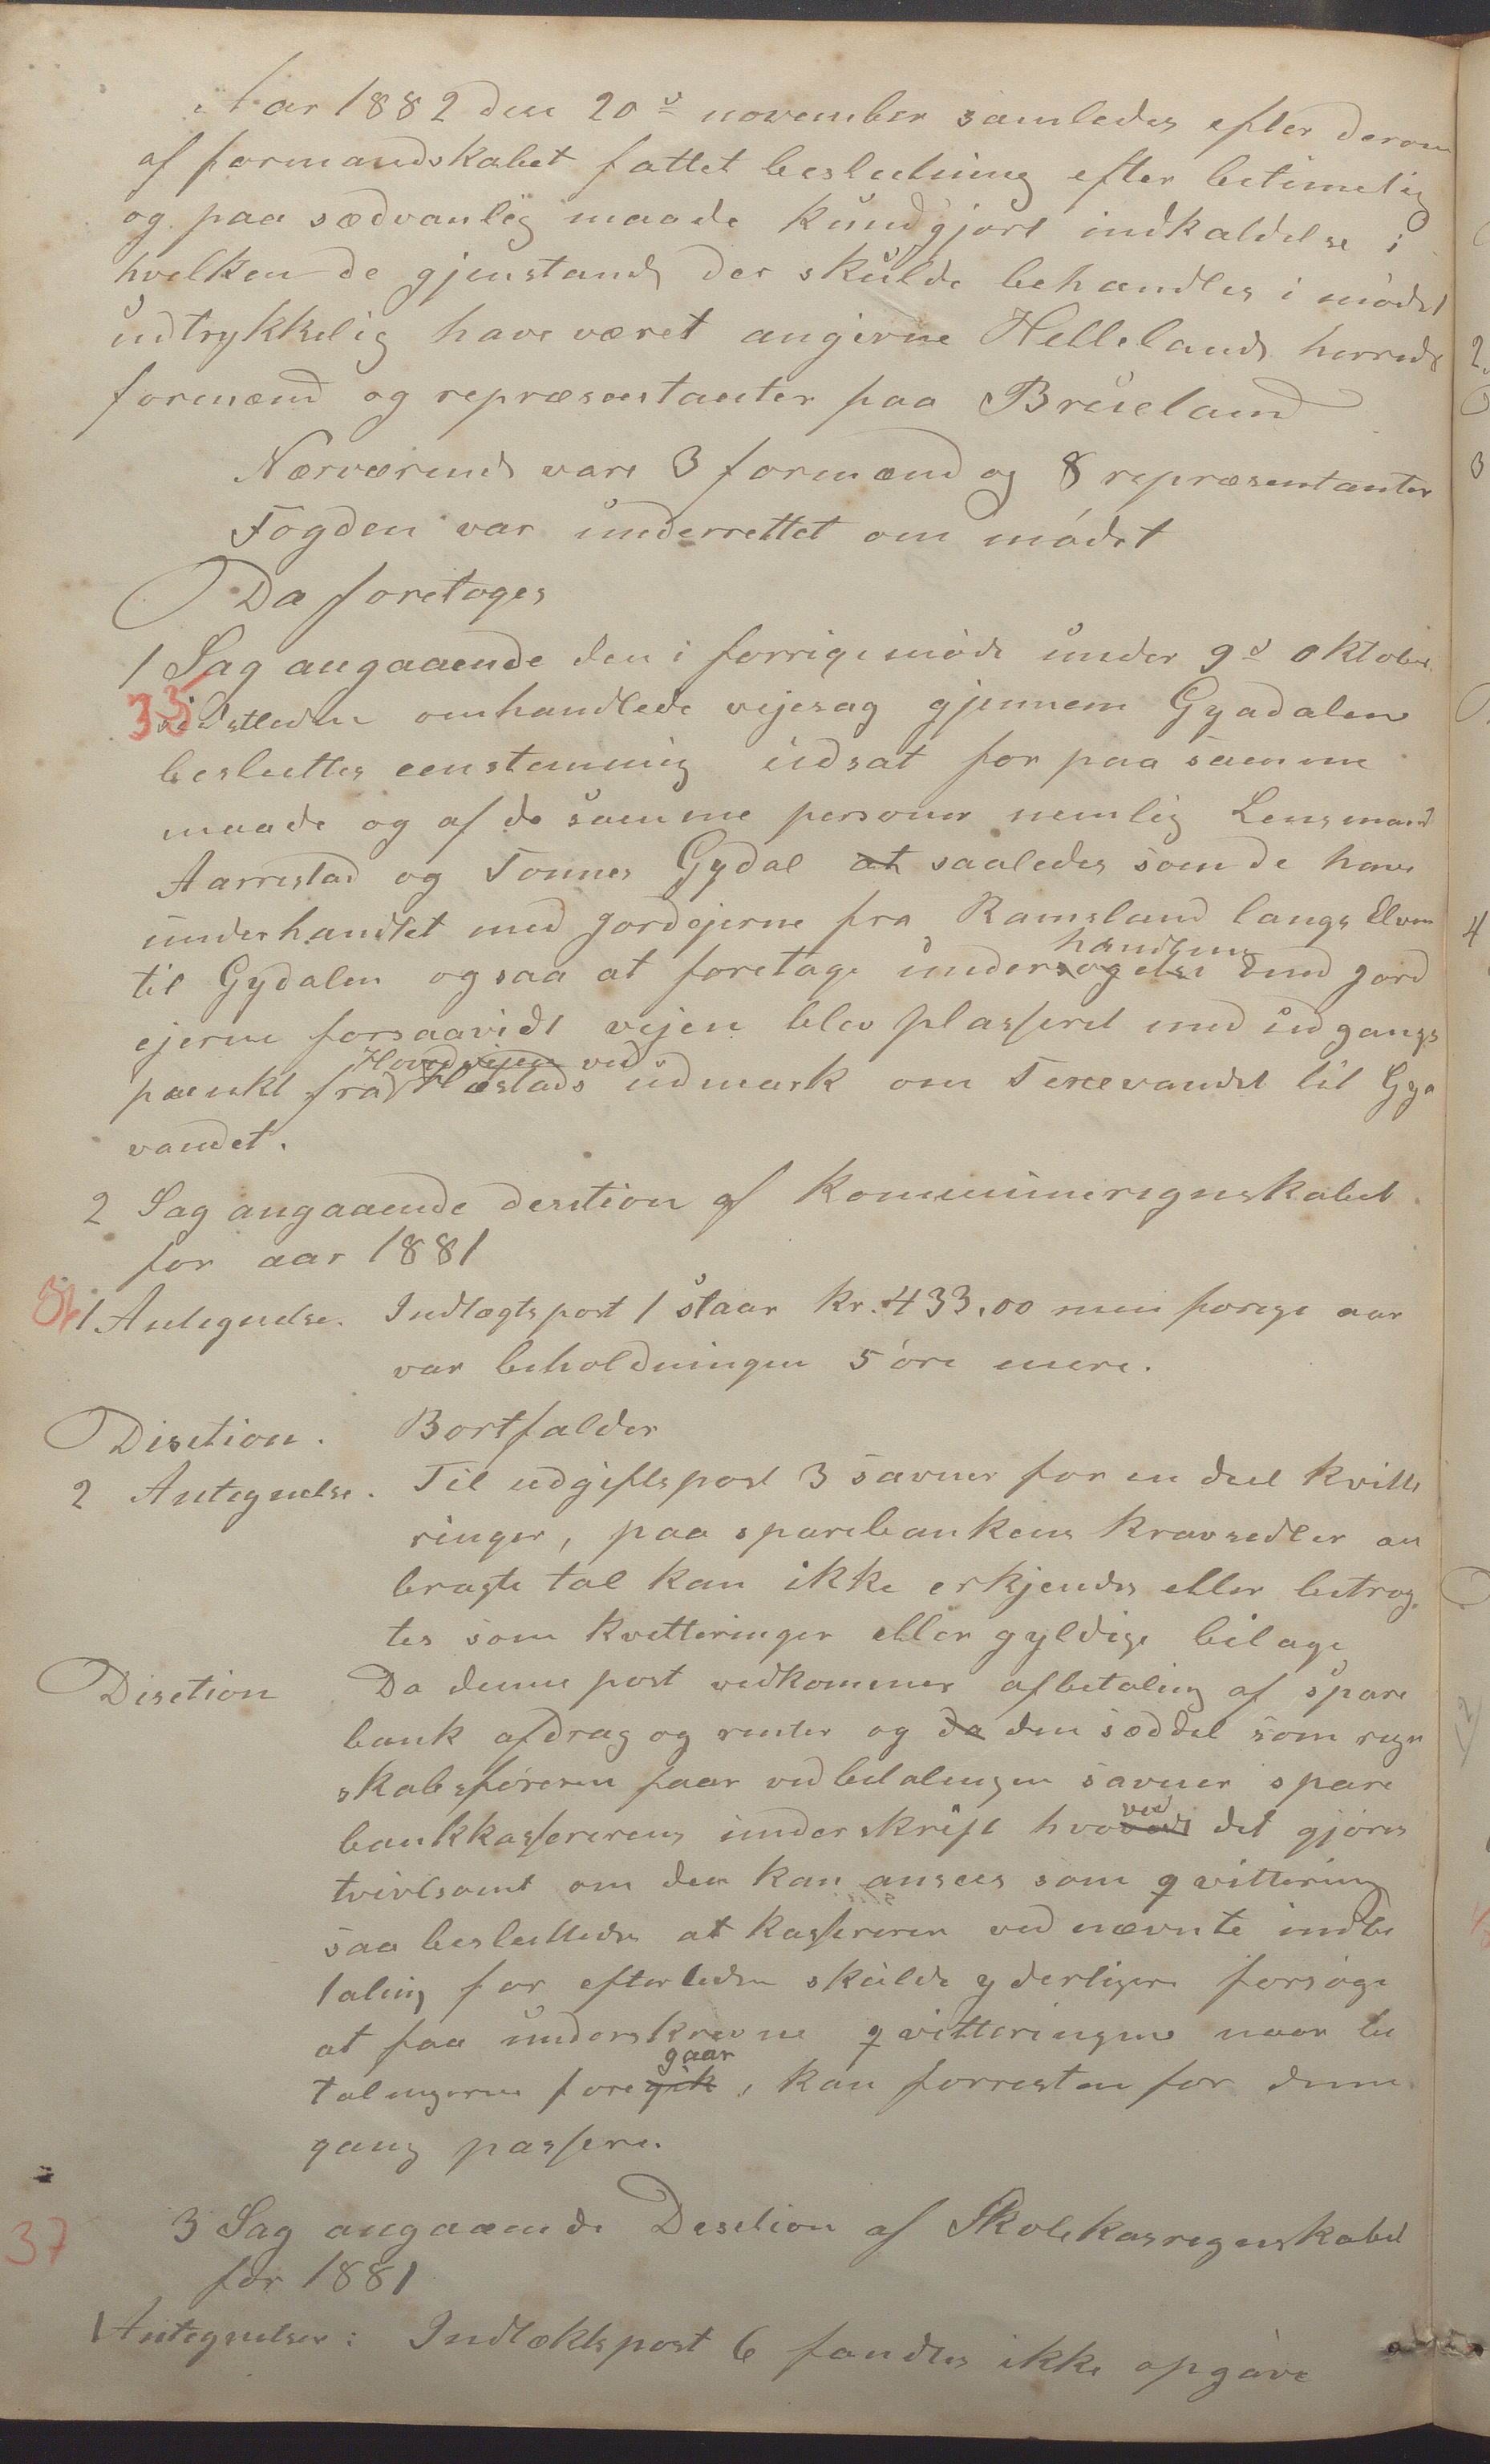 Aar 1882 den 20de november samledes efter derom
af formandskabet fattet beslutning efter betimelig
og paa sædvanlig maade kundgjort indkaldelse i
hvilken de gjenstand der skulde behandles i mødet
udtrykkelig have været angivne Hellelands herreds
formænd og repræsentanter paa Brueland
Nærværende vare 3 formænd og 8 repræsentanter
Fogden var underrettet om mødet
Da foretoges
1 Sag angaaende den i forrige møde under 9de oktober
35 sidstleden omhandlede vejesag gjennem Gyadalen
besluttes eenstemmig udsat for paa samme
maade og af de samme personer nemlig Lensmand
Aarrestad og Tonnes Gydal at saaledes som de have
underhandlet med jordejerne fra Ramsland langs Elven
handling
til Gydalen ogsaa at foretage undersøgelse med jord
ejerne forsaavidt vejen blev plasseret med udgangs
Hovedvejen ved
punkt fra Hæstads udmark om Terevandet til Gya
vandet.
2 Sag angaaende desition af Kommuneregnskabet
for aar 1881
36
1 Antegnelse. Indtægtspost 1 staar kr. 433,00 men forige aar
var beholdningen 5 øre mere.
Disition. Bortfalder
2 Antegnelse. Til udgiftspost 3 savner for en deel kvitte
ringer, paa sparebankens kravsedler an
bragte tal kan ikke erkjendes eller betrag
tes som kvitteringer eller gyldige bilage
Disition Da denne post vedkommer afbetaling af spare
bank afdrag og renter og da den seddel som regn
skabsføreren faar ved betalingen savner spare
ved
bankkassererens underskrift hvorved det gjøres
tvivlsomt om den kan ansees som qvittering
saa besluttedes at kassereren ved nævnte indbe
taling for efterleden skulde yderligere forsøge
at faa underskrevne qvitteringer naar be
gaar
talingerne foregik, kan forresten for denne
gang passere.
37 3 Sag angaaende Desition af Skolekasregnskabet
for 1881
1 Antegnelser: Indtæktspost 6 fandtes ikke opgave